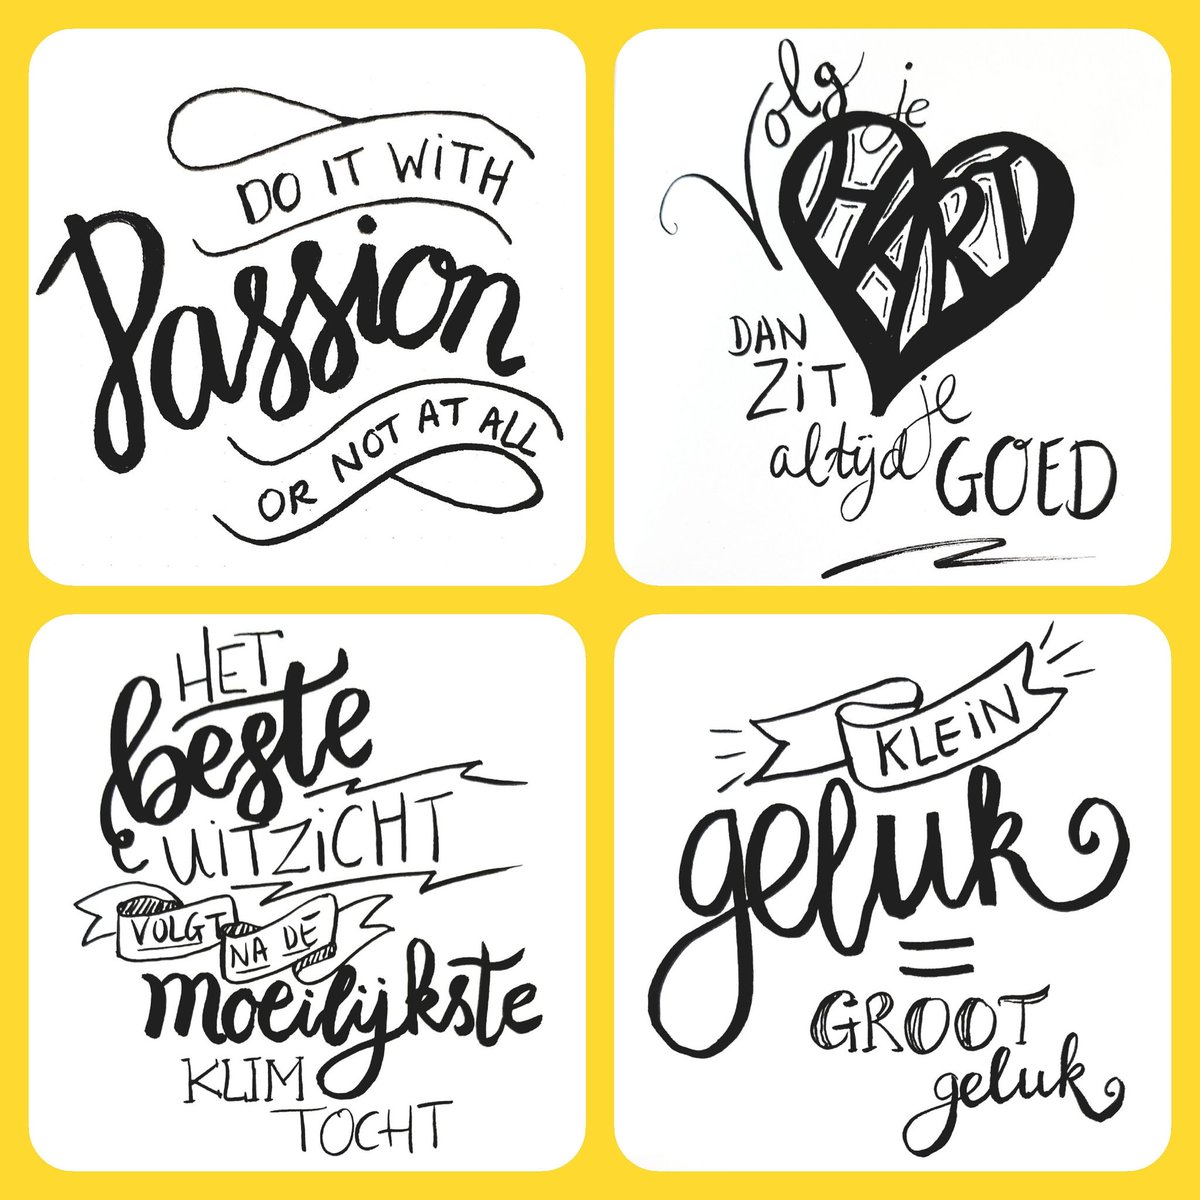 DO IT WITH
Passion
OR NOT AT ALL
Volg je
HART
DAN
ZIT
altijd je
GOED
HET
beste
UITZICHT
VOLGT
NA DE
moeilijkste
KLIM
TOCHT
KLEIN
geluk
=
GROOT
geluk